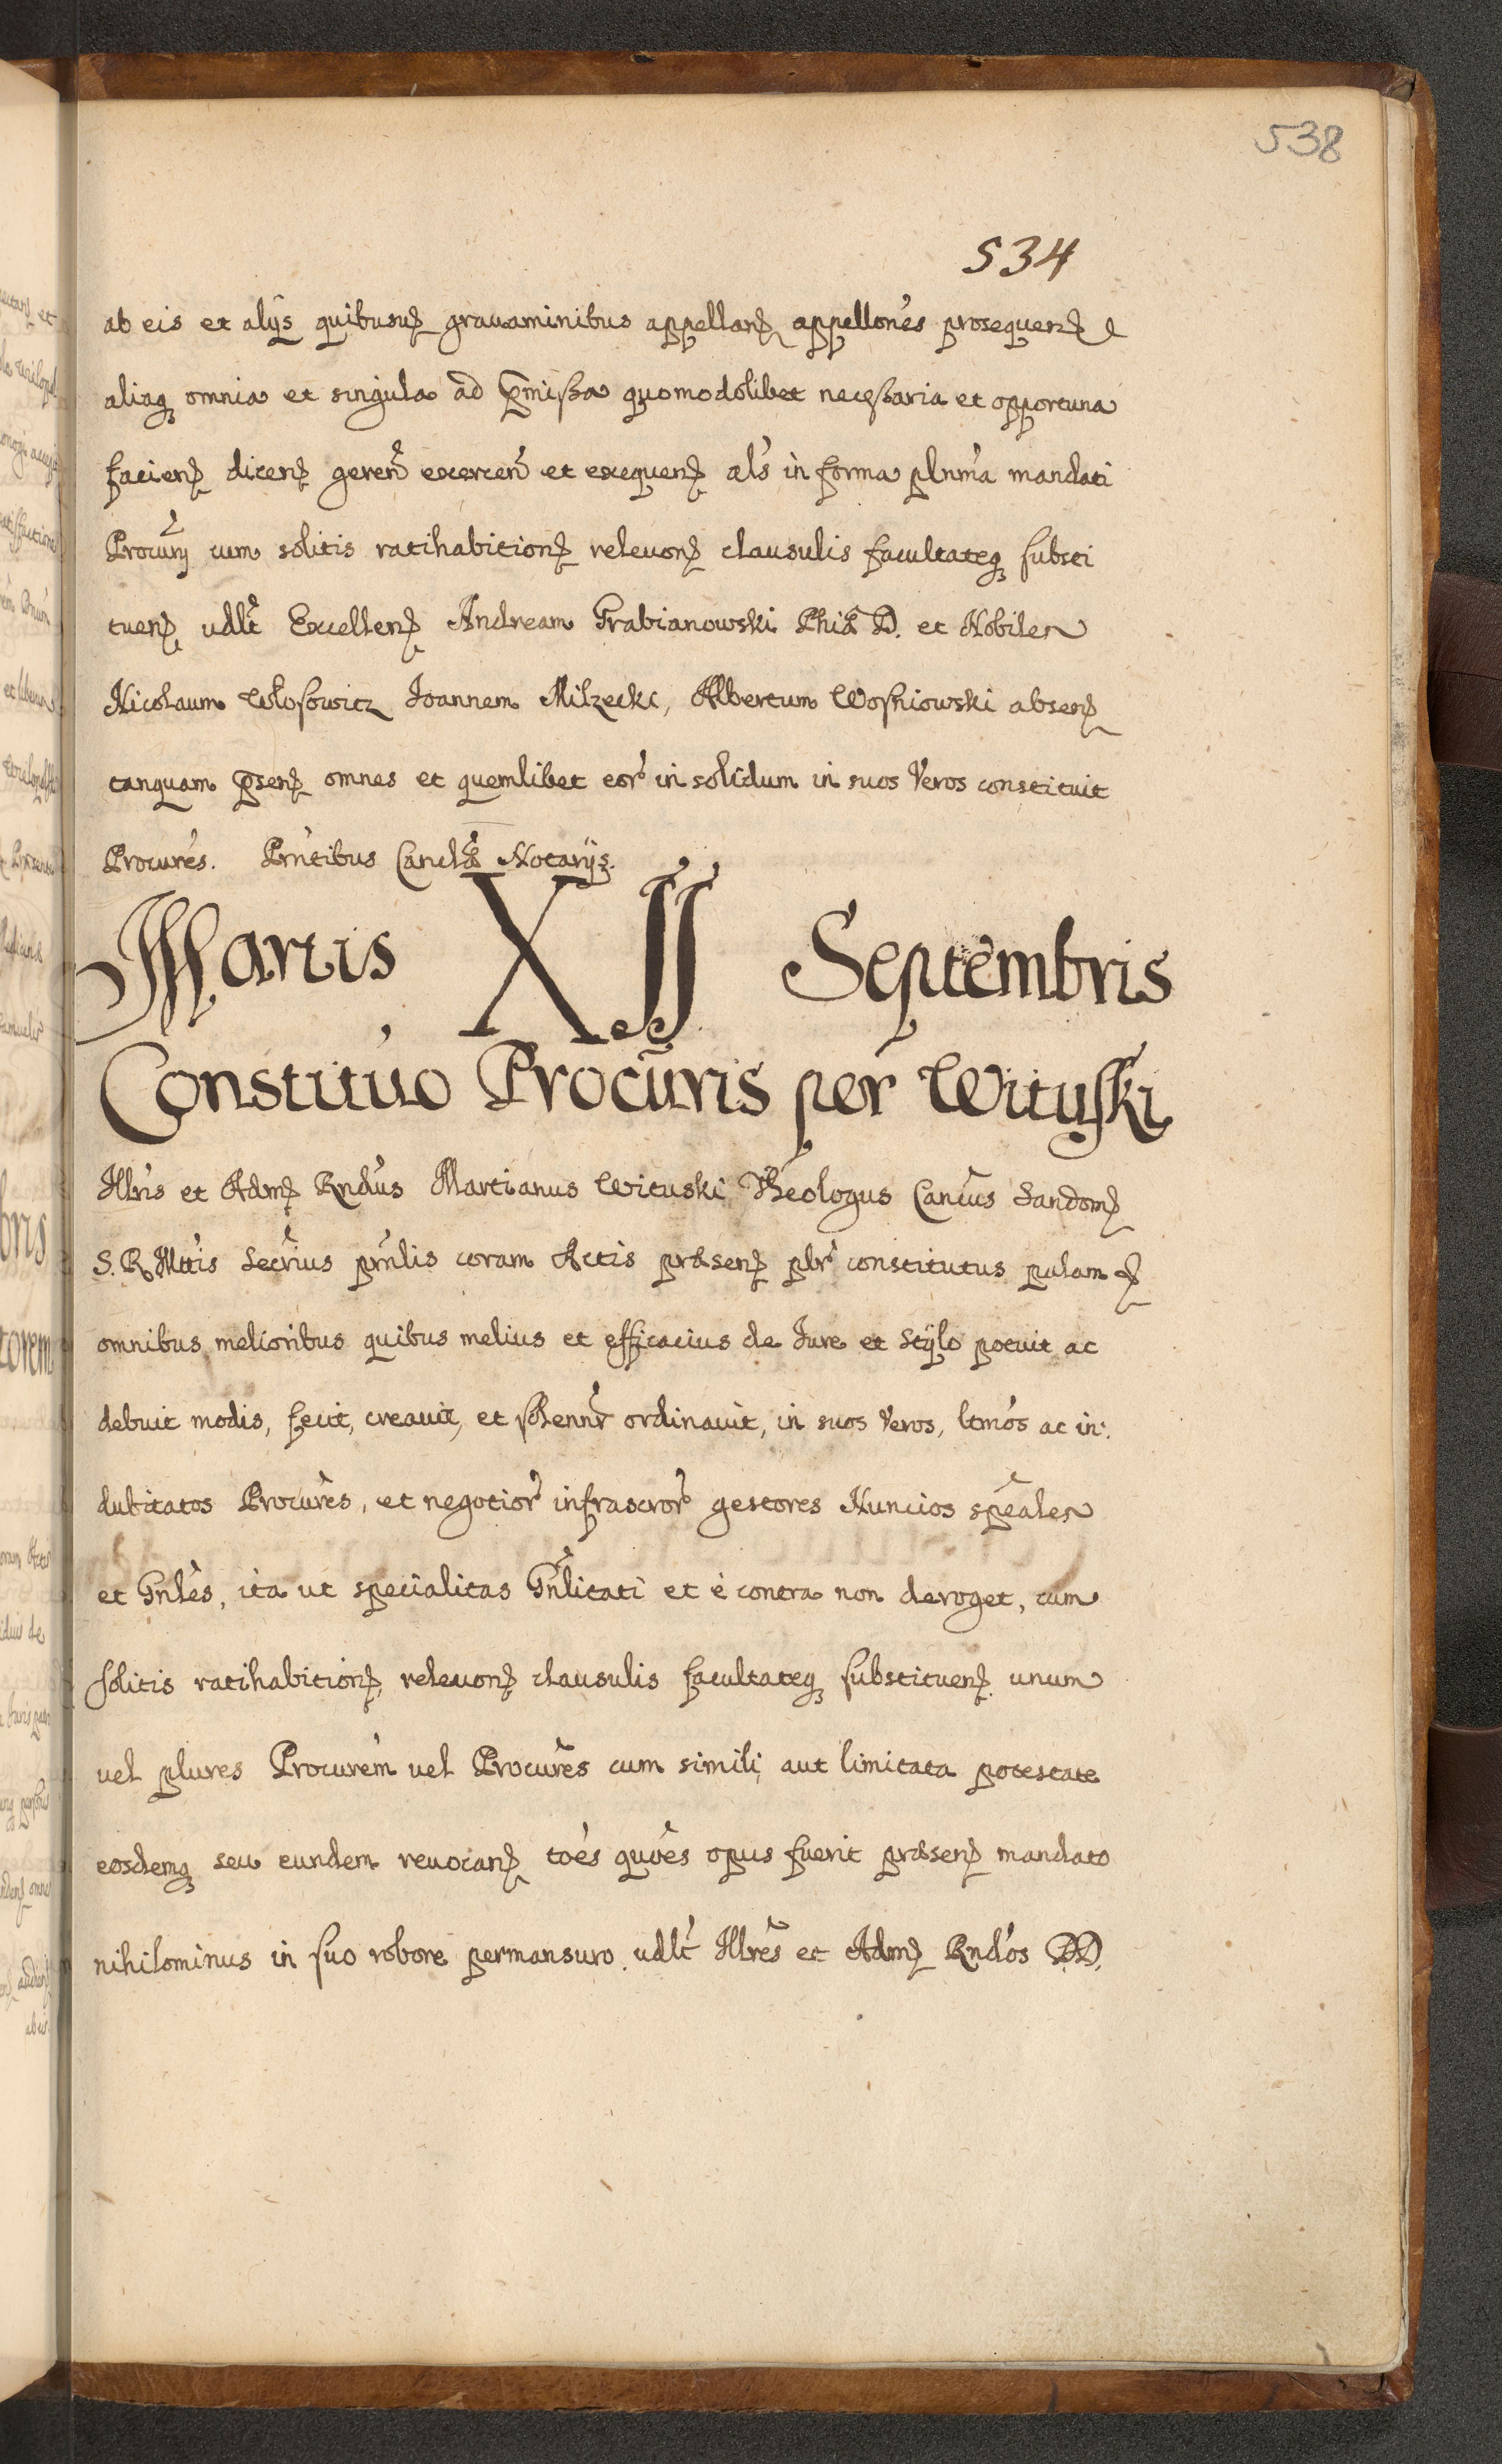 538
534
ab eis et alijs quibusuȝ grauaminibus appellanȝ appellon̄es prosequenȝ &
aliaqȝ omnia et singula ad p̄missa quomodolibet necessaria et opportuna
facienȝ dicenȝ geren̄ exercen̄ et exequenȝ als̄ in forma plnm̄a mandati
Procur̄ij cum solitis ratihabitionȝ releuonȝ clausulis facultateqȝ substi
tuenȝ vdlt̄ Excellenȝ Andream Grabianowski Phiæ D. et Nobiles
Nicolaum Wlosowicz Joannem Milzecki, Albertum Wosniowski absenȝ
tanquam p̄senȝ omnes et quemlibet eor̄ in solidum in suos Veros constituit
Procures̄. Prn̄tibus Canclǣ Notarijs.
Martis XII Septembris
Constituo̅ Procur̄is per Wituski
Illris̄ et Admȝ Rndūs Martianus Wituski Theologus Canc̄us Sandomȝ
S. R. Mtt̄is Secrīus prn̄lis coram Actis præsenȝ plr̄ constitutus palam &ȝ
omnibus melioribus quibus melius et efficacius de Jure et Stÿlo potuit ac
debuit modis, fecit, creauit, et solennr̄ ordinauit, in suos Veros, ltm̄os ac in:
dubitatos Procur̄es, et negotior̄ infrascror̄ gestores Nuncios spēales
et Gnlēs, ita ut specialitas Gn̄litati et è contra non deroget, cum
solitis ratihabitionȝ, releuonȝ clausulis facultateqȝ substituenȝ unum
uel plures Procurem̄ uel Procur̄es cum simili, aut limitata potestate
eosdemqȝ seu eundem reuocanȝ toēs quoēs opus fuerit præsenȝ mandato
nihilominus in suo robore permansuro. vdlt̄ Illrēs et Admȝ Rndōs DD.